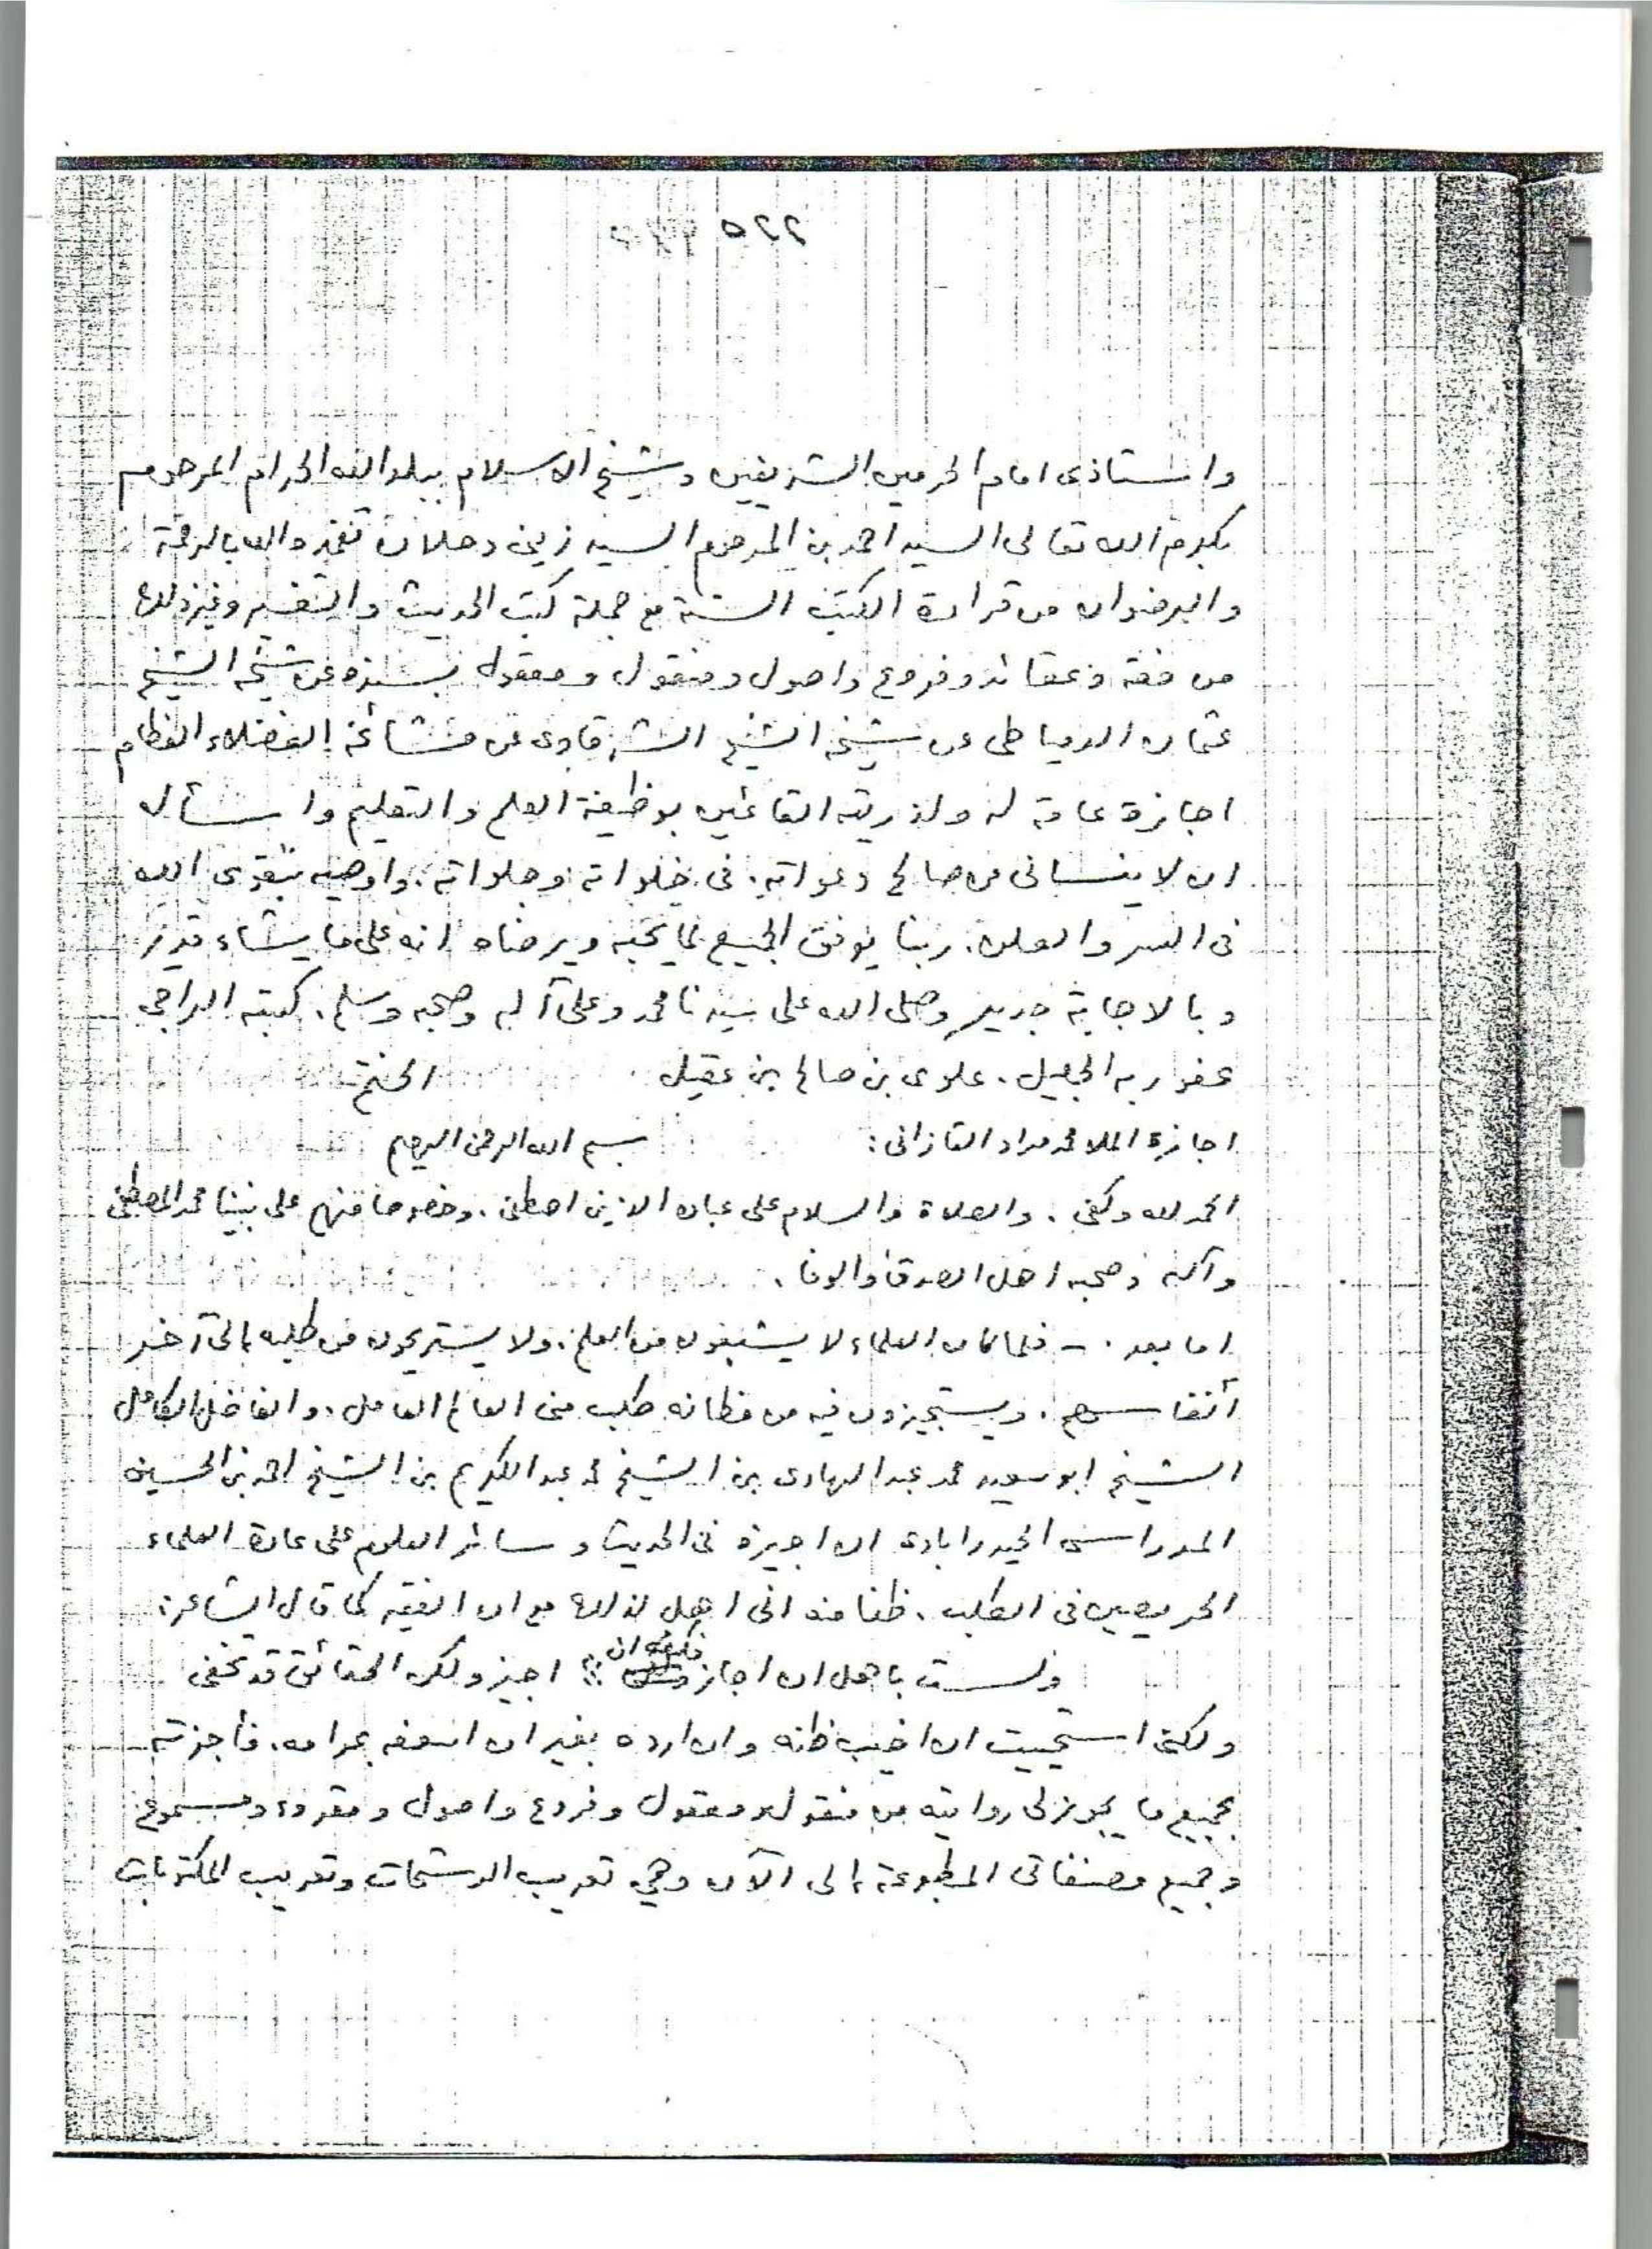 ٥٢٢
واستاذى امام الحرمين الشريفين وشيخ الاسلام ببلد الله الحرام المرحوم
بكرم الله تعالى السيد احمد بن المرحوم السيد زينى دحلان تغمده الله بالرحمة
والرضوان من قراءة الكتب الستة مع جملة كتب الحديث والتفسير وغير ذلك
من فقه وعقائد وفروع واصول ومنقول ومعقول بسنده عن شيخه الشيخ
عثمان الدمياطى عن شيخه الشيخ الشرقاوى عن مشائخه الفضلاء العظام
اجازة عامة له ولذريته القائمين بوظيفة العلم والتعليم واسأل
ان لا ينسانى من صالح دعواته. فى خلواته وجلواته. واوصيه بتقوى الله
فى السر والعلن. ربنا يوفق الجميع لما يحبه ويرضاه انه على ما يشاء قدير
وبالاجابة جدير وصلى الله على سيدنا محمد وعلى آله وصحبه وسلم. كتبه الراجى
عفو ربه الجليل. علوى بن صالح بن عقيل الختم
اجازة الملا محمد مراد القازانى: بسم الله الرحمن الرحيم
الحمد لله وكفى. والصلاة والسلام على عباده الذين اصطفى. وخصوصا منهم على نبينا محمد المصطفى
وآله وصحبه اهل الصدق والوفا.
اما بعد. - فلما كان العلماء لا يشبعون من العلم. ولا يستريحون من طلبه الى آخر
أنفاسهم. ويستجيزون فيه من مظانه طلب منى العالم العامل. والفاضل الكامل
الشيخ ابو سعيد محمد عبد الهادى بن الشيخ محمد عبد الكريم بن الشيخ احمد بن الحسين
المدراسى الحيدرابادى ان اجيزه فى الحديث وسائر العلوم على عادة العلماء
الحريصين فى الطلب. ظنا منه انى اهل لذلك مع ان الفقيه كما قال الشاعر:
ولست باهل ان اجاز فكيف ان :: اجيز ولكن الحقائق قد تخفى
ولكنى استحييت ان اخيب ظنه وان ارده بغير ان اسعفه بمرامه. فأجزته
بجميع ما يجوز لى روايته من منقول ومعقول وفروع واصول ومقروء ومسموع
وجميع مصنفاتى المطبوعة الى الآن وهى تعريب الرشحات وتعريب المكتوبات